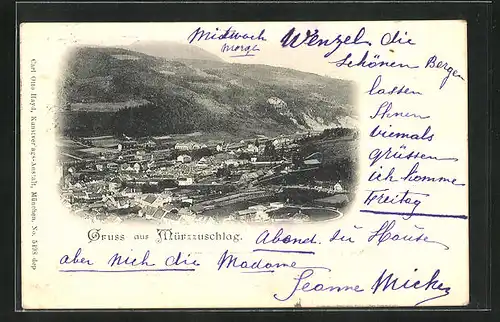 Mittwoch
morgen
Wenzel die
schönen Bergen
lassen
Ihnen
viemals
grüssen
ich komme
Freitag
Abend zu Hause
aber nich die Madame
Jeanne Mickey
Gruss aus Mürzzuschlag.
Carl Otto Hayd, Kunstverlags-Anstalt, München, No. 5498 dep